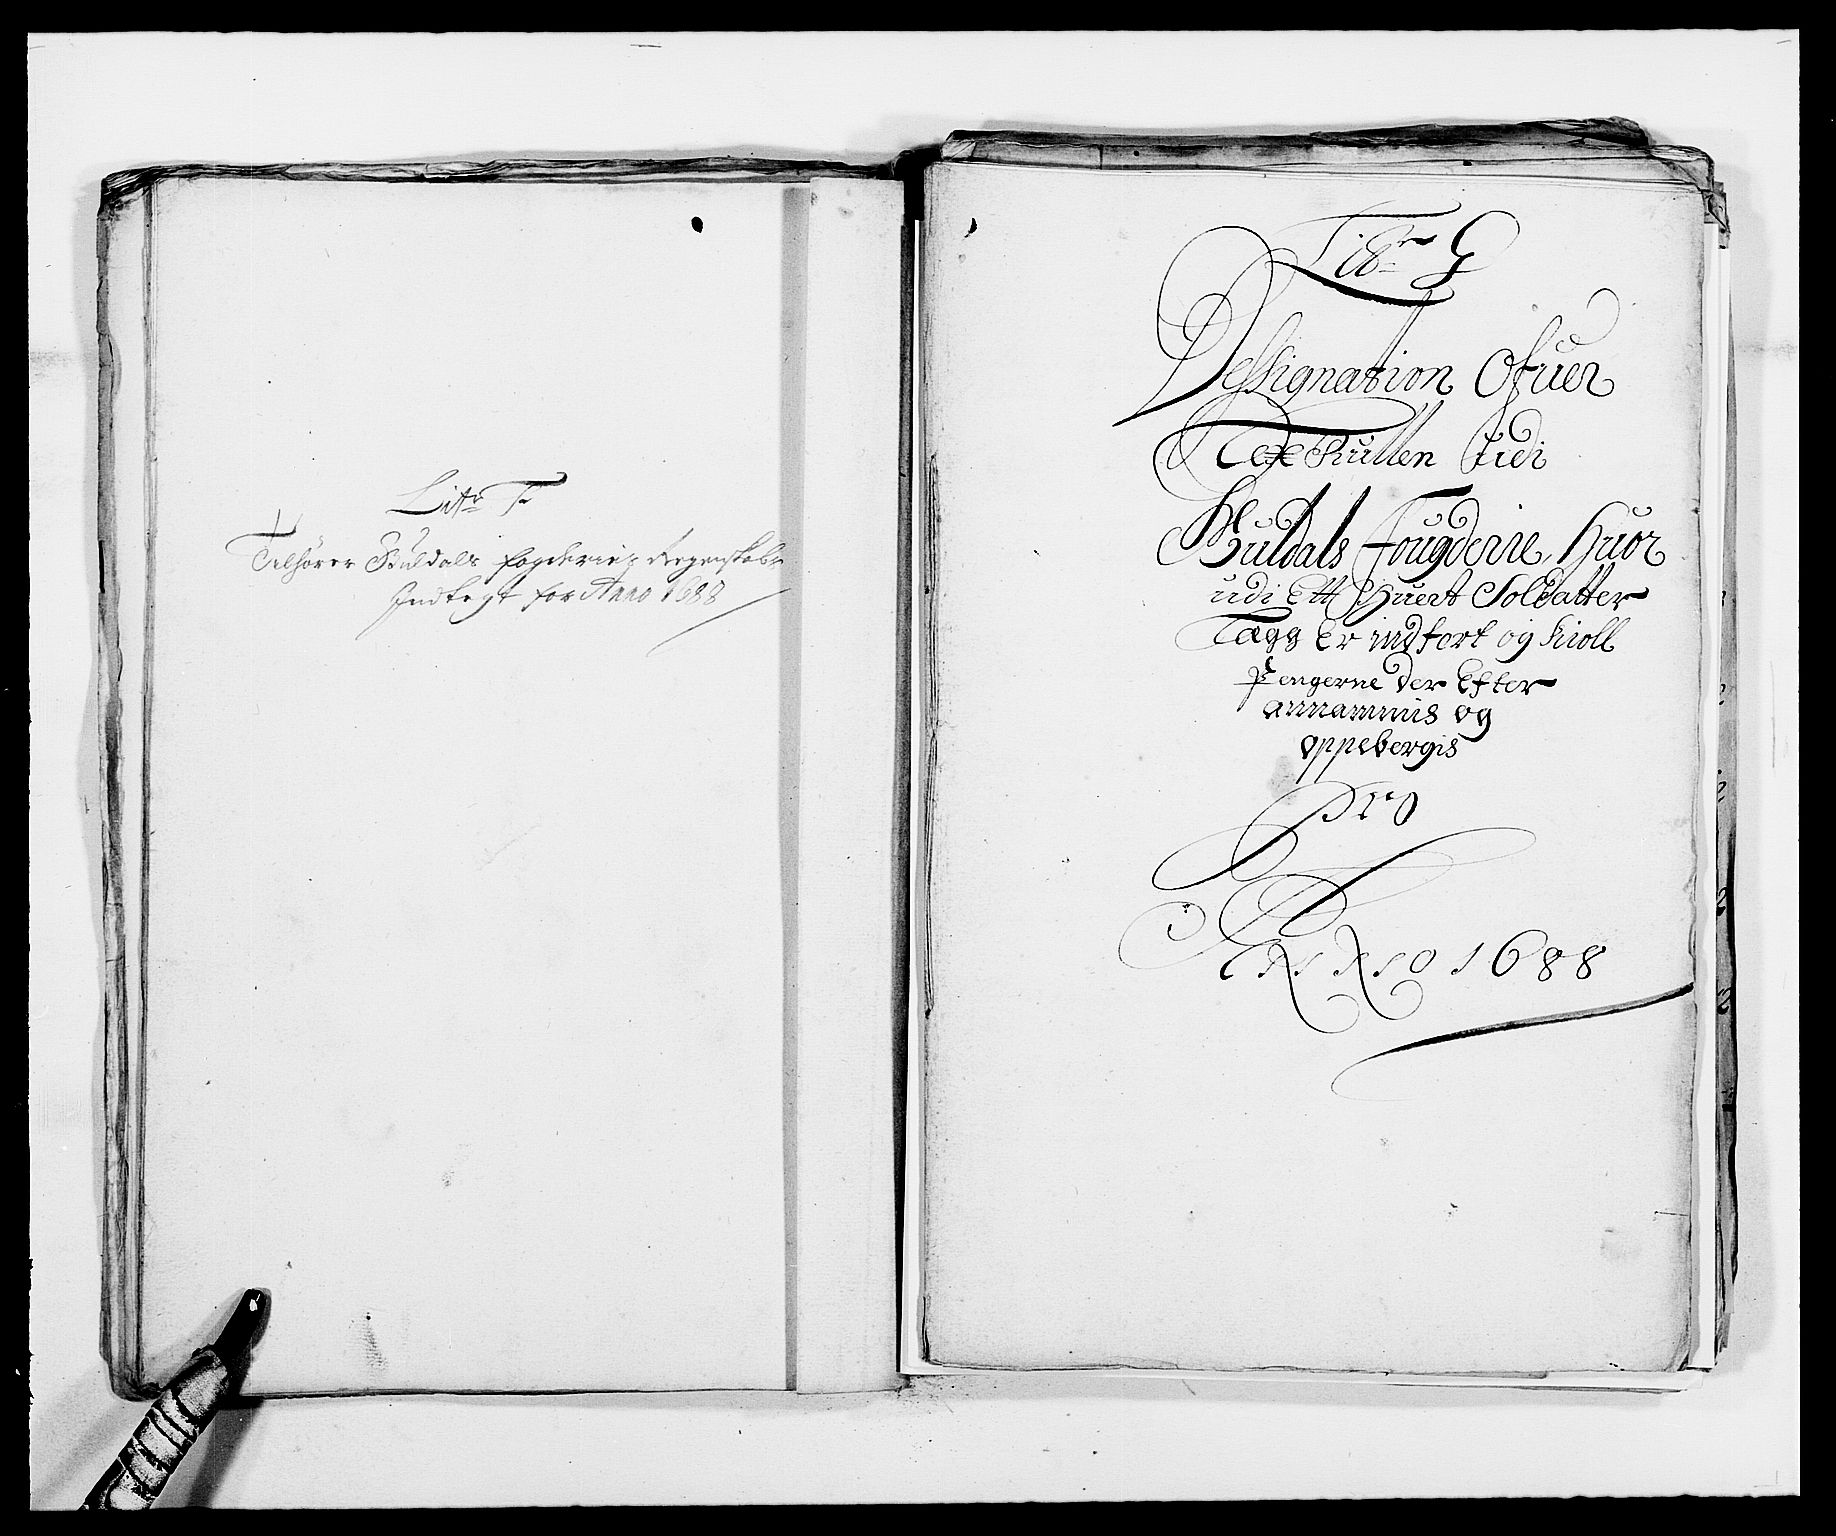 Litr F
Tilhörer Buldals fogderies Regenskabs
Indtegt for Anno 1688
Litr G
Dessignation Ofuer
Lexe Rullen Udi
Buldals Fougderie, Huor
udi Ett Huert Soldatter
Lægs Er indfört og Knoll
Pengerne der Efter
annammis og
oppebergis
Pro
ANNO 1688